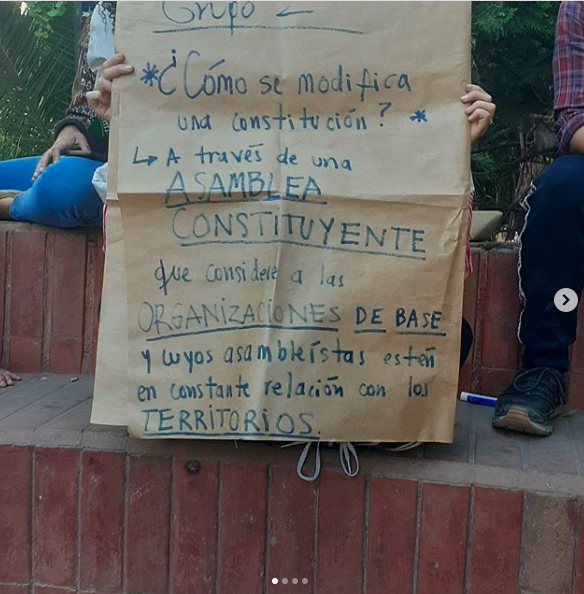 Grupo 2
*¿Cómo se modifica
una constitución? *
↳ A través de una
ASAMBLEA
CONSTITUYENTE
que considere a las
ORGANIZACIONES DE BASE
y cuyos asambleístas estén
en constante relación con los
TERRITORIOS.